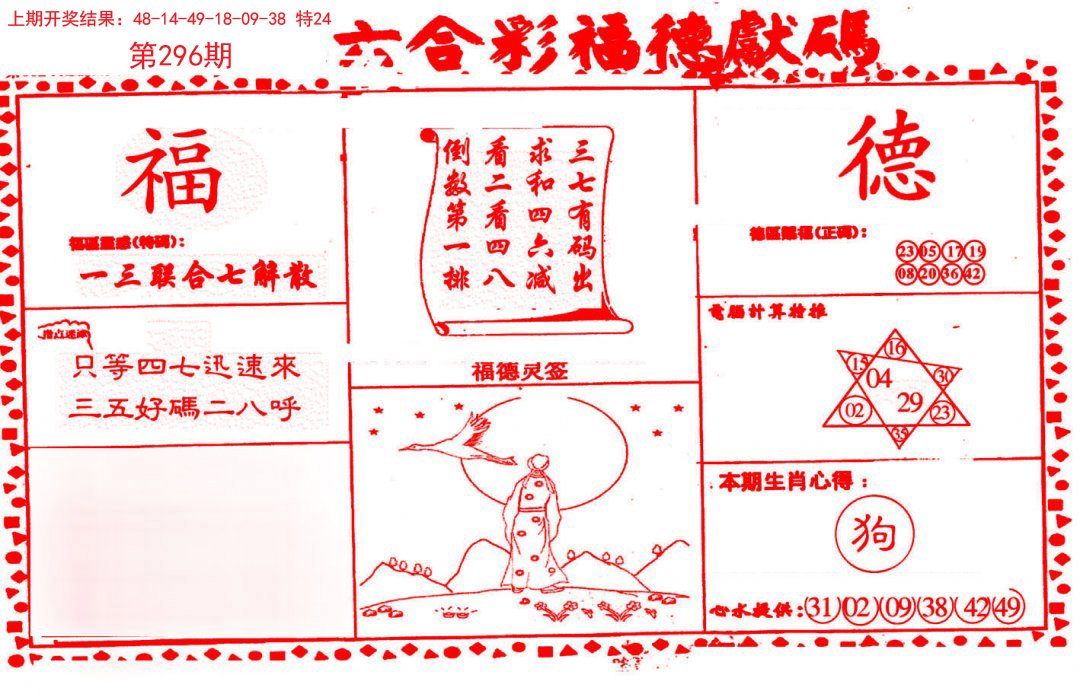 上期开奖结果：48-14-49-18-09-38 特24
第296期
六合彩福德獻碼
福
福區靈感(特碼)：
一三联合七解散
指点迷津
只等四七迅速來
三五好碼二八呼
三七有码出
求和四六减
看二看四八
倒数第一排
福德灵签
德
德區賜福(正碼)：
23 05 17 19
08 20 36 42
電腦計算特推
16
15 04 30
02 29 23
35
本期生肖心得：
狗
心水提供：(31)(02)(09)(38)(42)(49)